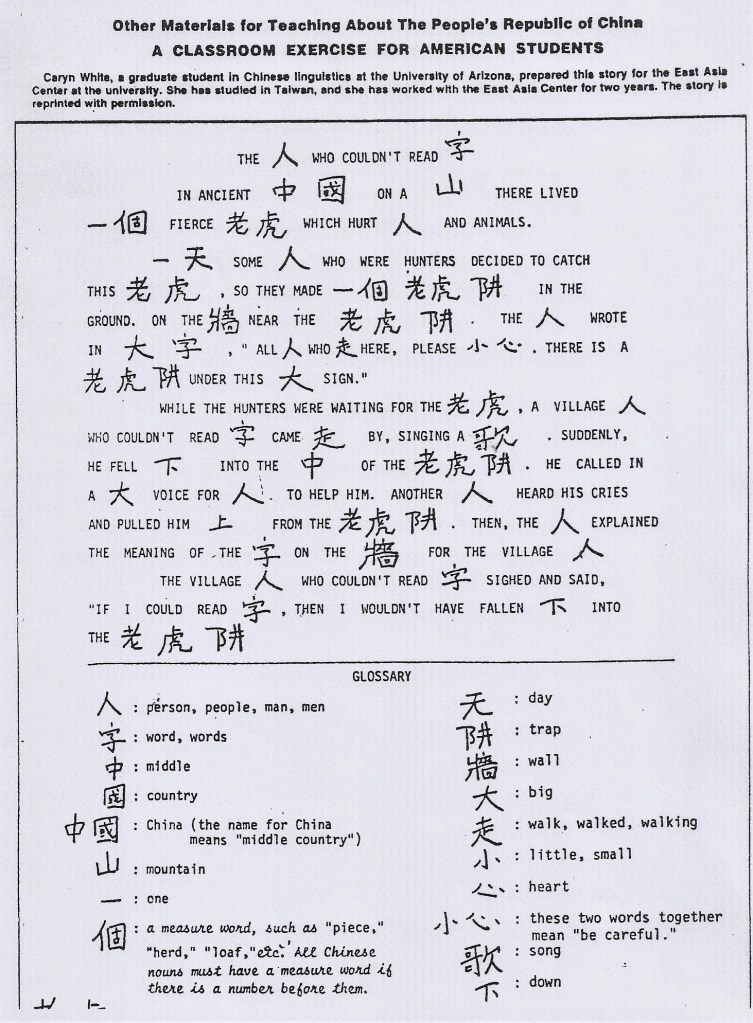 Other Materials for Teaching About The People's Republic of China
A CLASSROOM EXERCISE FOR AMERICAN STUDENTS
Caryn White, a graduate student in Chinese linguistics at the University of Arizona, prepared this story for the East Asia
Center at the university. She has studied in Taiwan, and she has worked with the East Asia Center for two years. The story is
reprinted with permission.
THE 人 WHO COULDN'T READ 字
IN ANCIENT 中 國 ON A 山 THERE LIVED
一個 FIERCE 老虎 WHICH HURT 人 AND ANIMALS.
一 天 SOME 人 WHO WERE HUNTERS DECIDED TO CATCH
THIS 老虎 , SO THEY MADE 一個 老虎 阱 IN THE
GROUND. ON THE 牆 NEAR THE 老虎 阱 . THE 人 WROTE
IN 大 字 , " ALL 人 WHO 走 HERE, PLEASE 小心 . THERE IS A
老虎阱 UNDER THIS 大 SIGN."
WHILE THE HUNTERS WERE WAITING FOR THE 老虎 , A VILLAGE 人
WHO COULDN'T READ 字 CAME 走 BY, SINGING A 歌 . SUDDENLY,
HE FELL 下 INTO THE 中 OF THE 老虎阱 . HE CALLED IN
A 大 VOICE FOR 人 . TO HELP HIM. ANOTHER 人 HEARD HIS CRIES
AND PULLED HIM 上 FROM THE 老虎阱 . THEN, THE 人 EXPLAINED
THE MEANING OF THE 字 ON THE 牆 FOR THE VILLAGE 人
THE VILLAGE 人 WHO COULDN'T READ 字 SIGHED AND SAID,
"IF I COULD READ 字 , THEN I WOULDN'T HAVE FALLEN 下 INTO
THE 老虎 阱
GLOSSARY
人 : person, people, man, men
字 : word, words
中 : middle
國 : country
中國 : China (the name for China
means "middle country")
山 : mountain
一 : one
個 : a measure word, such as "piece,"
"herd," "loaf," etc. All Chinese
nouns must have a measure word if
there is a number before them.
天 : day
阱 : trap
牆 : wall
大 : big
走 : walk, walked, walking
小 : little, small
心 : heart
小心 : these two words together
mean "be careful."
歌 : song
下 : down